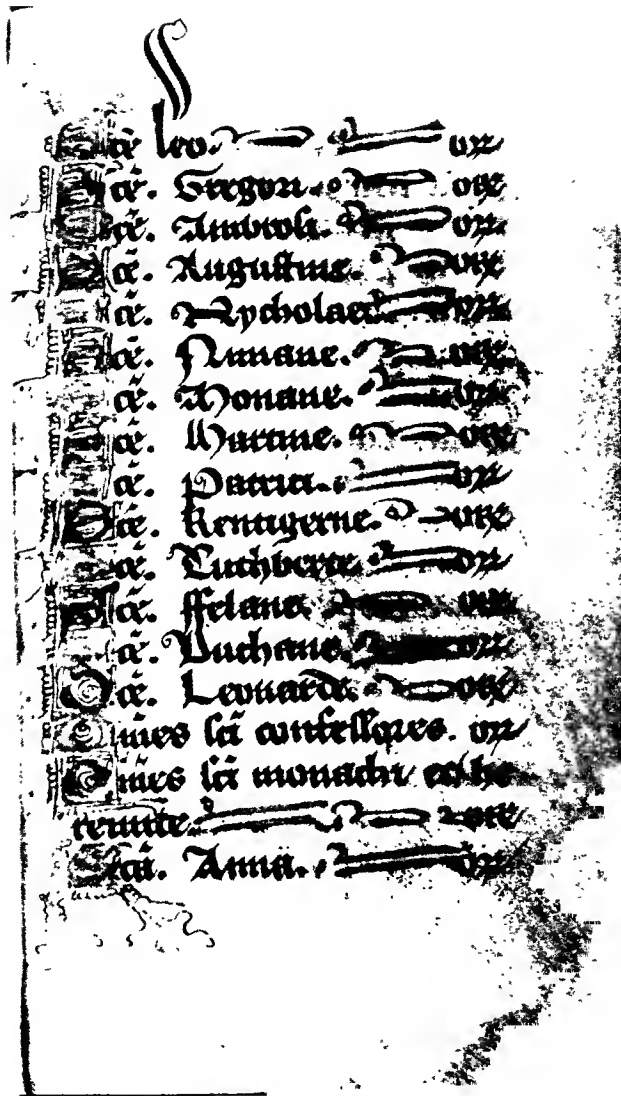 Sce leo. or
Sce. Gregori. ore
Sce. Ambrosi. or
Sce. Augustine. ore
Sce. Nycholae. or
Sce. Niniane. ore
Sce. Monane. or
Sce. Martine. ore
Sce. Patrici. or
Sce. Kentigerne. ore
Sce. Cuthberte or
Sce. ffelane. ore
Sce. Duthane. or
Sce. Leonarde. ore
Omēs sci confessores. or
Omēs sci monachi et he
remite. ore
Scā. Anna. or